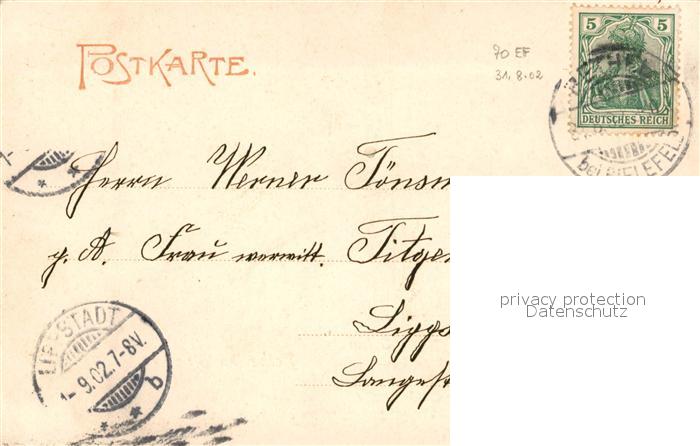 POSTKARTE.
70 EF
31.8.02
5 5
DEUTSCHES REICH
BETHEL
bei BIELEFELD
Herrn Werner Tönsm
p. A. Frau verwitt. Titge
Lipps
Langest
LIPPSTADT
1-9.02.7-8V.
b
privacy protection
Datenschutz